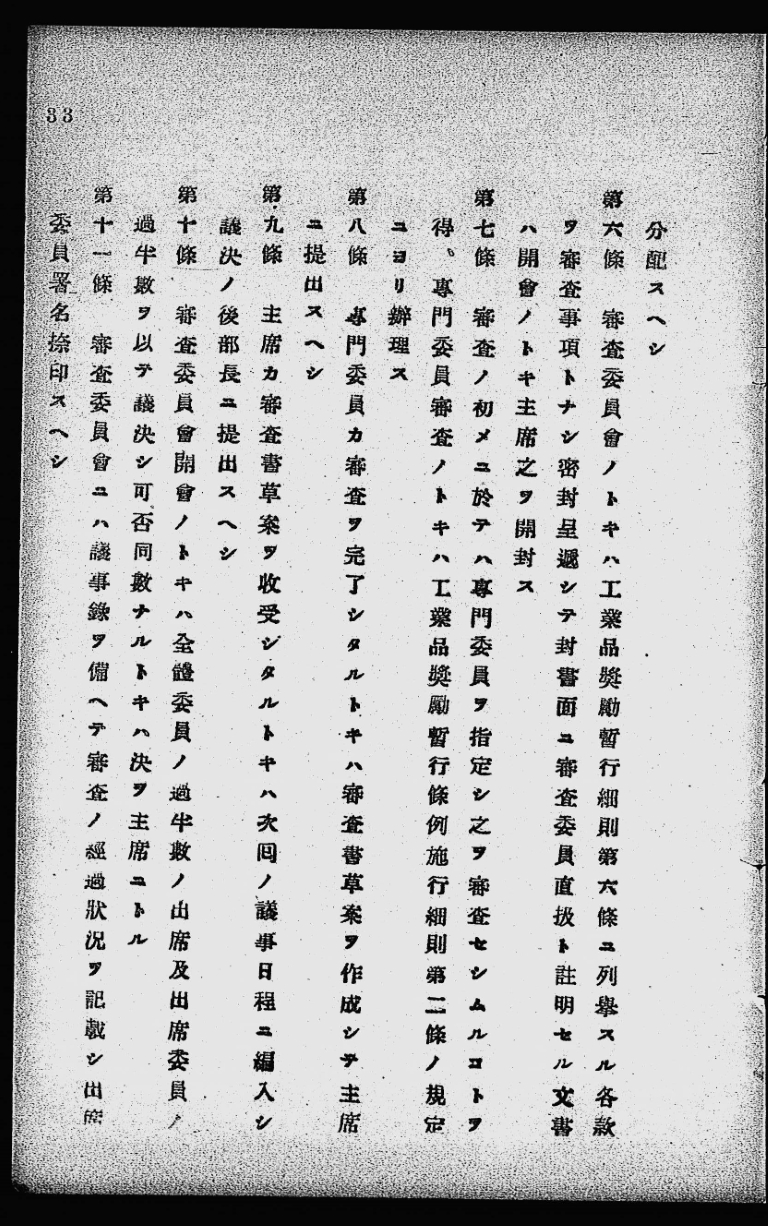 33
分配スヘシ
第六條　審査委員會ノトキハ工業品奬勵暫行細則第六條ニ列擧スル各款
ヲ審査事項トナシ密封呈遞シテ封書面ニ審査委員直扱ト註明セル文書
ハ開會ノトキ主席之ヲ開封ス
第七條　審査ノ初メニ於テハ專門委員ヲ指定シ之ヲ審査セシムルコトヲ
得、專門委員審査ノトキハ工業品奬勵暫行條例施行細則第二條ノ規定
ニヨリ辦理ス
第八條　專門委員カ審査ヲ完了シタルトキハ審査書草案ヲ作成シテ主席
ニ提出スヘシ
第九條　主席カ審査書草案ヲ收受シタルトキハ次囘ノ議事日程ニ編入シ
議決ノ後部長ニ提出スヘシ
第十條　審査委員會開會ノトキハ全體委員ノ過半數ノ出席及出席委員ノ
過半數ヲ以テ議決シ可否同數ナルトキハ決ヲ主席ニトル
第十一條　審査委員會ニハ議事錄ヲ備ヘテ審査ノ經過狀況ヲ記載シ出席
委員署名捺印スヘシ